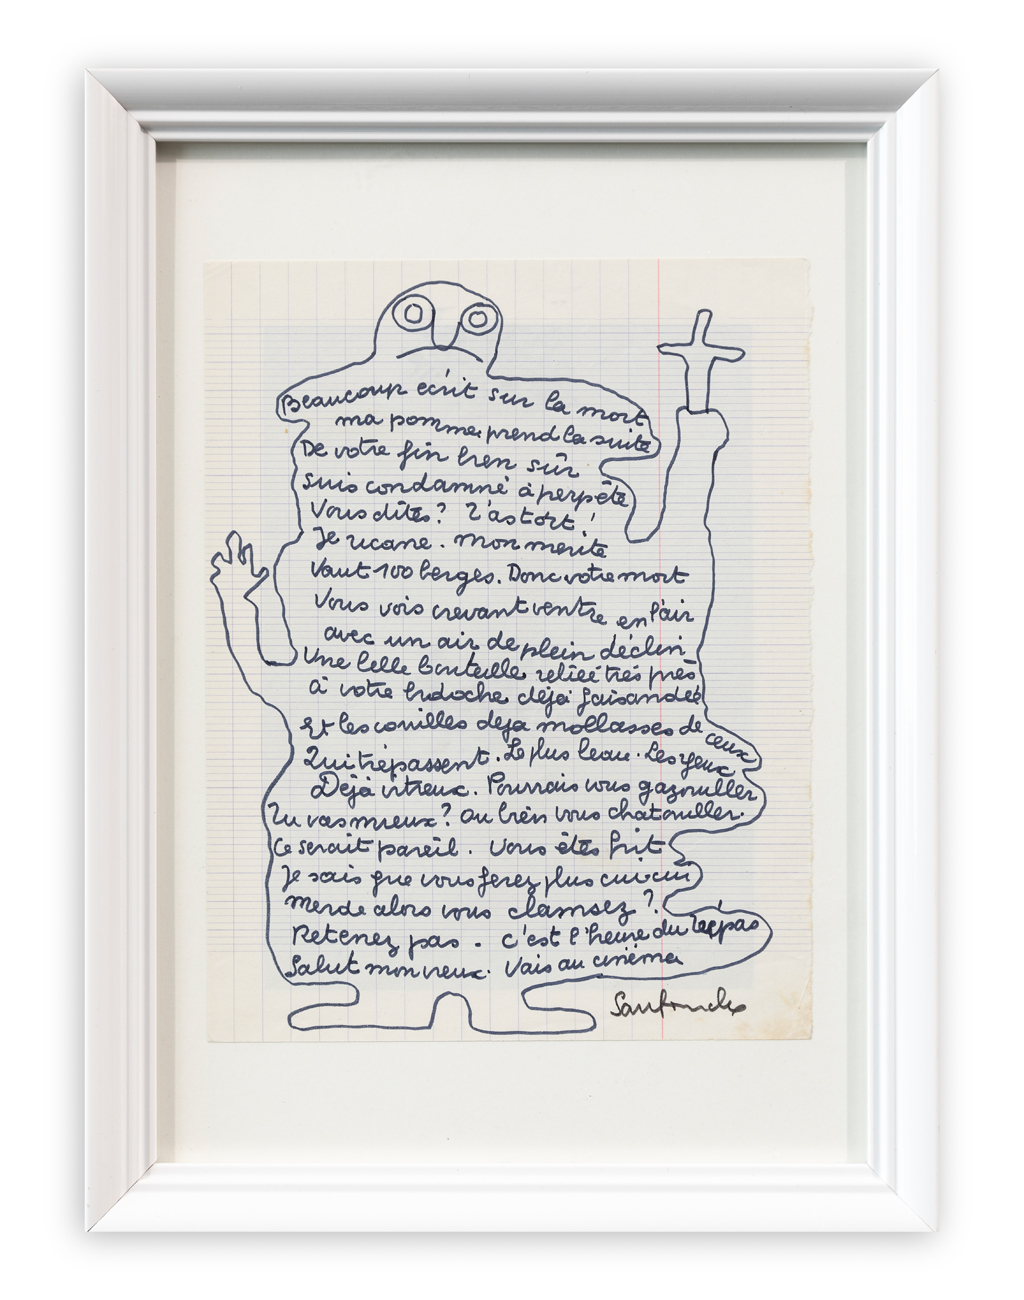 Beaucoup écrit sur la mort
ma pomme prend la suite
De votre fin bien sûr
suis condamné à perpète
Vous dîtes? T'as tort!
Je ricane. Mon mérite
Vaut 100 berges. Donc votre mort
Vous vois crevant ventre en l'air
avec un air de plein déclin
Une belle bouteille reliée très près
à votre bidoche déjà faisandée
Et les couilles déja mollasses de ceux
Qui trépassent. Le plus beau. Les yeux
Déjà vitreux. Pourrais vous gazouiller
Tu vas mieux? Ou bien vous chatouiller.
Ce serait pareil. Vous êtes frit
Je sais que vous ferez plus cui-cui
Merde alors vous clamsez?
Retenez pas. C'est l'heure du repas
Salut mon vieux. Vais au cinéma